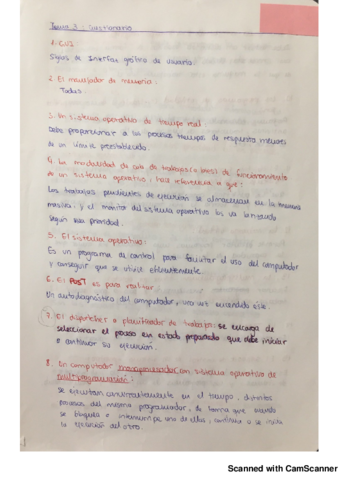 Tema 3 - Cuestionario
1. GUI
Siglas de Interfaz gráfica de usuario.
2. El manejador de memoria:
Todas
3. Un sistema operativo de tiempo real
Debe proporcionar a los procesos tiempos de respuesta menores
de un cierto preestablecido.
4. La modalidad de cola de trabajos (o batch) de funcionamiento
de un sistema operativo, hace referencia a que:
Los trabajos pendientes de ejecución se almacenan en la memoria
masiva y el monitor del sistema operativo los va lanzando
según sea prioridad.
5. El sistema operativo:
Es un programa de control para facilitar el uso del computador
y conseguir que se utilice eficientemente.
6. El POST es para realizar
Un autodiagnóstico del computador, una vez encendido este.
7. El dispatcher o planificador de trabajos: se encarga de
seleccionar el proceso en estado preparado que debe iniciar
o continuar su ejecución.
8. En computador monoprocesador con sistema operativo de
multiprogramación:
Se ejecutan concurrentemente en el tiempo, distintos
procesos del mismo programador, de forma que cuando
se bloquea o interrumpe uno de ellos, continúa o se inicia
la ejecución del otro.
Scanned with CamScanner